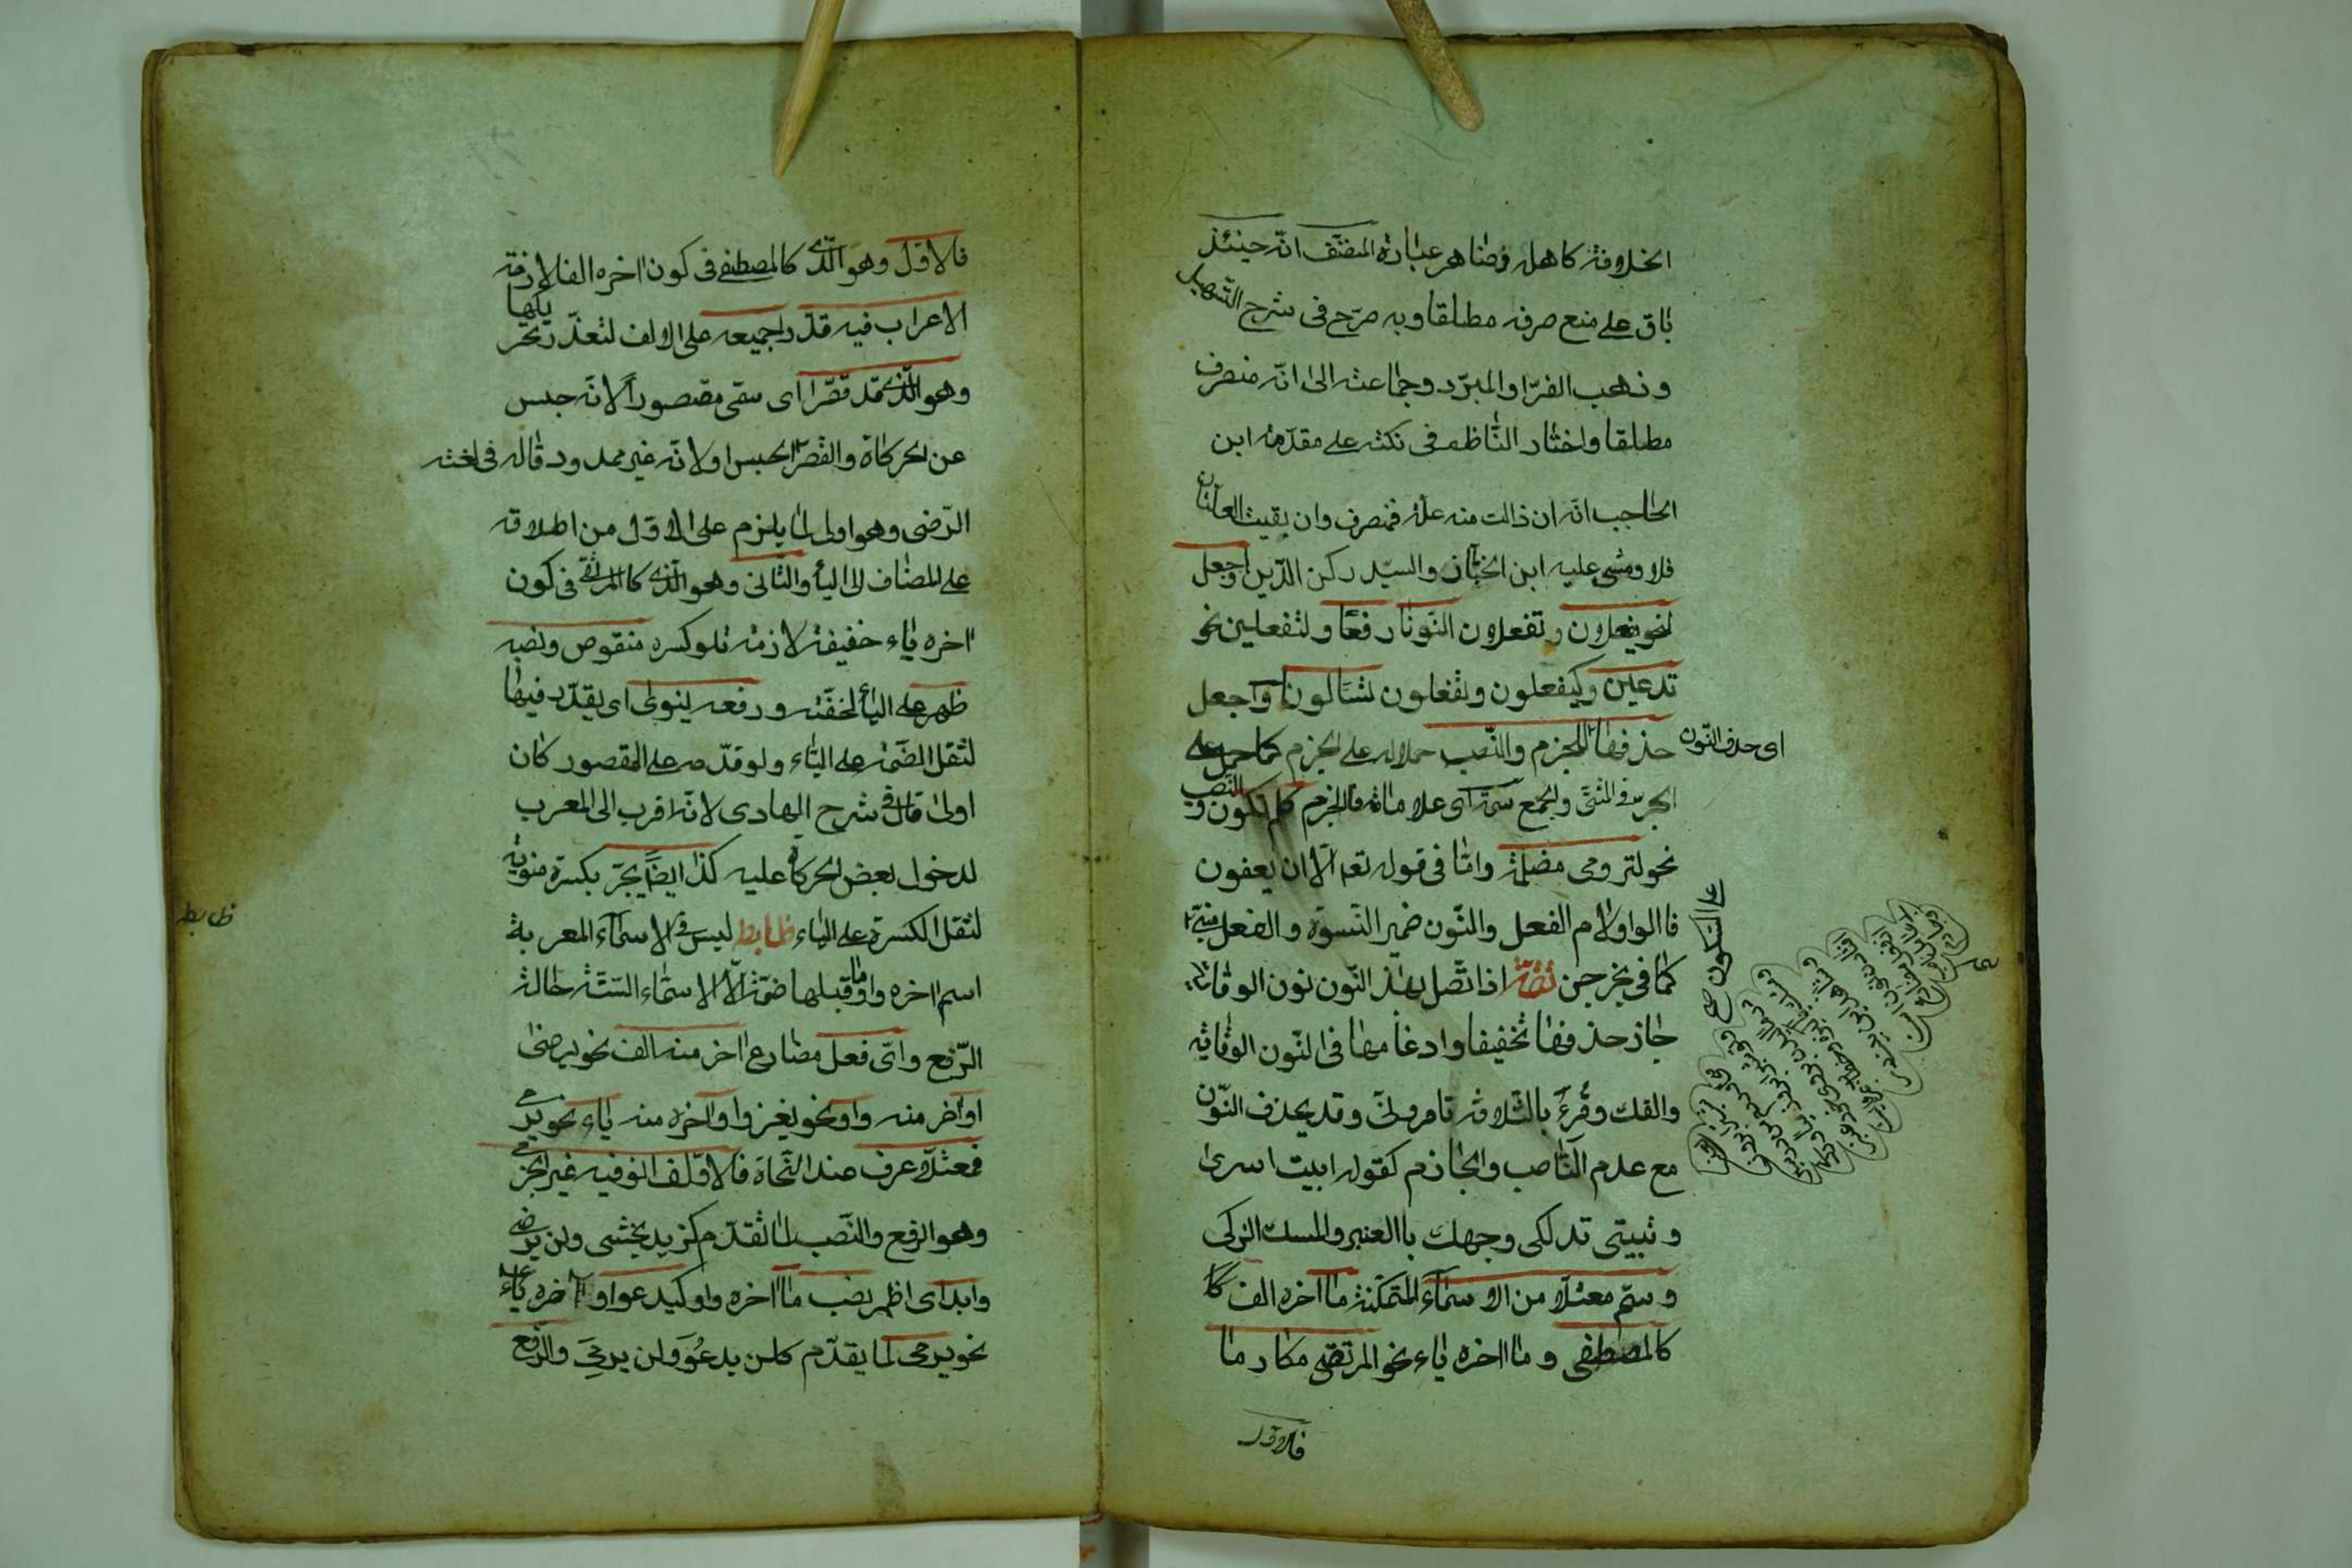 الخلافة كاهله وظاهر عبارة المصنّف انّه حينئذ
باق على منع صرفه مطلقا وبه صرّح فى شرح التسهيل
وذهب الفرّا والمبرّد وجماعة الى انّه منصرف
مطلقا واختار النّاظم فى نكته على مقدّمة ابن
الحاجب انّه ان ذالت منه علّة فمنصرف وان بقيت العلّتان
فلا ومشى عليه ابن الخبّاز والسيّد ركن الدّين واجعل
لنحو يفعلان وتفعلان النّونا رفعًا ولتفعلين نحو
تدعين وكيفعلون وتفعلون تسئالونا واجعل
حذفها للجزم والنّصب حملا له على الجزم كما حمل على
اى حذف النّون
الجر فى المثنّى والجمع سمة اى علامة فالجزم كلم تكون والنّصب
نحو لترومى مظلمة وامّا فى قوله تعم الّا ان يعفون
فا الواو لام الفعل والنّون ضمير النّسوة والفعل مبنىّ
على السّكون صح
كما فى يخرجن تتمّة اذا اتّصل بهذ النّون نون الوقاية
جاز حذفها تخفيفا وادغامها فى النّون الوقاية
والفك وقرءَ بالثّلاثة تامرونّى وقد يحذف النّون
مع عدم النّاصب والجازم كقوله ابيت اسرى
وتبيتى تدلكى وجهك باالعنبر والمسك الزكى
وسمّ معتلّا من الاسماء المتمكّنة ما اخره الف كا
كالمصطفى وما اخره ياء نحو المرتقى مكارما
فالاوّل
فالاوّل وهو الّذى كالمصطفى فى كون اخره الفا لازمة
الاعراب فيه قدّرا جميعه على الالف لتعذّر تحريكها
وهو الّذى قد قصّرا اى سمّى مقصوراً لانّه حبس
عن الحركاة والقصر الحبس اولانّه غير ممدود قاله فى لغته
الرّضى وهو اولى لما يلزم على الاوّل من اطلاقه
على المضاف الى اليأ والثّانى وهو الّذى كالمرتقى فى كون
اخره ياء خفيفة لازمة تلو كسره منقوص ونصبه
ظهر على اليأ لخفّته ورفعه ينوى اى يقدّر فيها
لثقل الضّمة على اليّاء ولو قدّمه على المقصور كان
اولى قال فى شرح الهادى لانّه اقرب الى المعرب
لدخول بعض الحركاة عليه كذا ايضًا يجرّ بكسرة منويّة
لثقل الكسرة على الياء ضابطه ليس فى الاسماء المعربة
ضابطه
اسم اخره واو وما قبلها ضمّة الّا الاسماء السّتّة حالة
الرّفع واىّ فعل مضارع اخر منه الف نحو يرضى
او اخر منه واو نحو يغزوا او اخره منه ياء نحو يرمى
فمعتلّا عرف عند النّحاة فالاوّلف انو فيه غير الجزم
وهو الرفع والنّصب لما تقدّم كزيد يخشى ولن يرضى
وابد اى اظهر نصب ما اخره واو كيدعوا واخره ياء
نحو يرمى لما يقدّم كلن يدعوَ ولن يرمىَ والرّفع